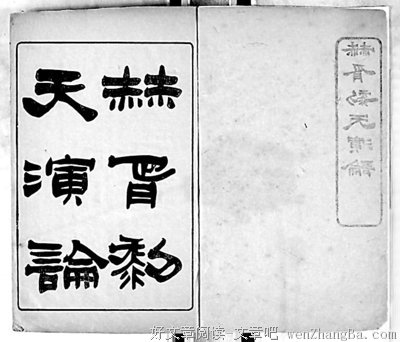 赫胥黎天演論
赫胥黎
天演論
好文章阅读-文章吧 wenZhangBa.com